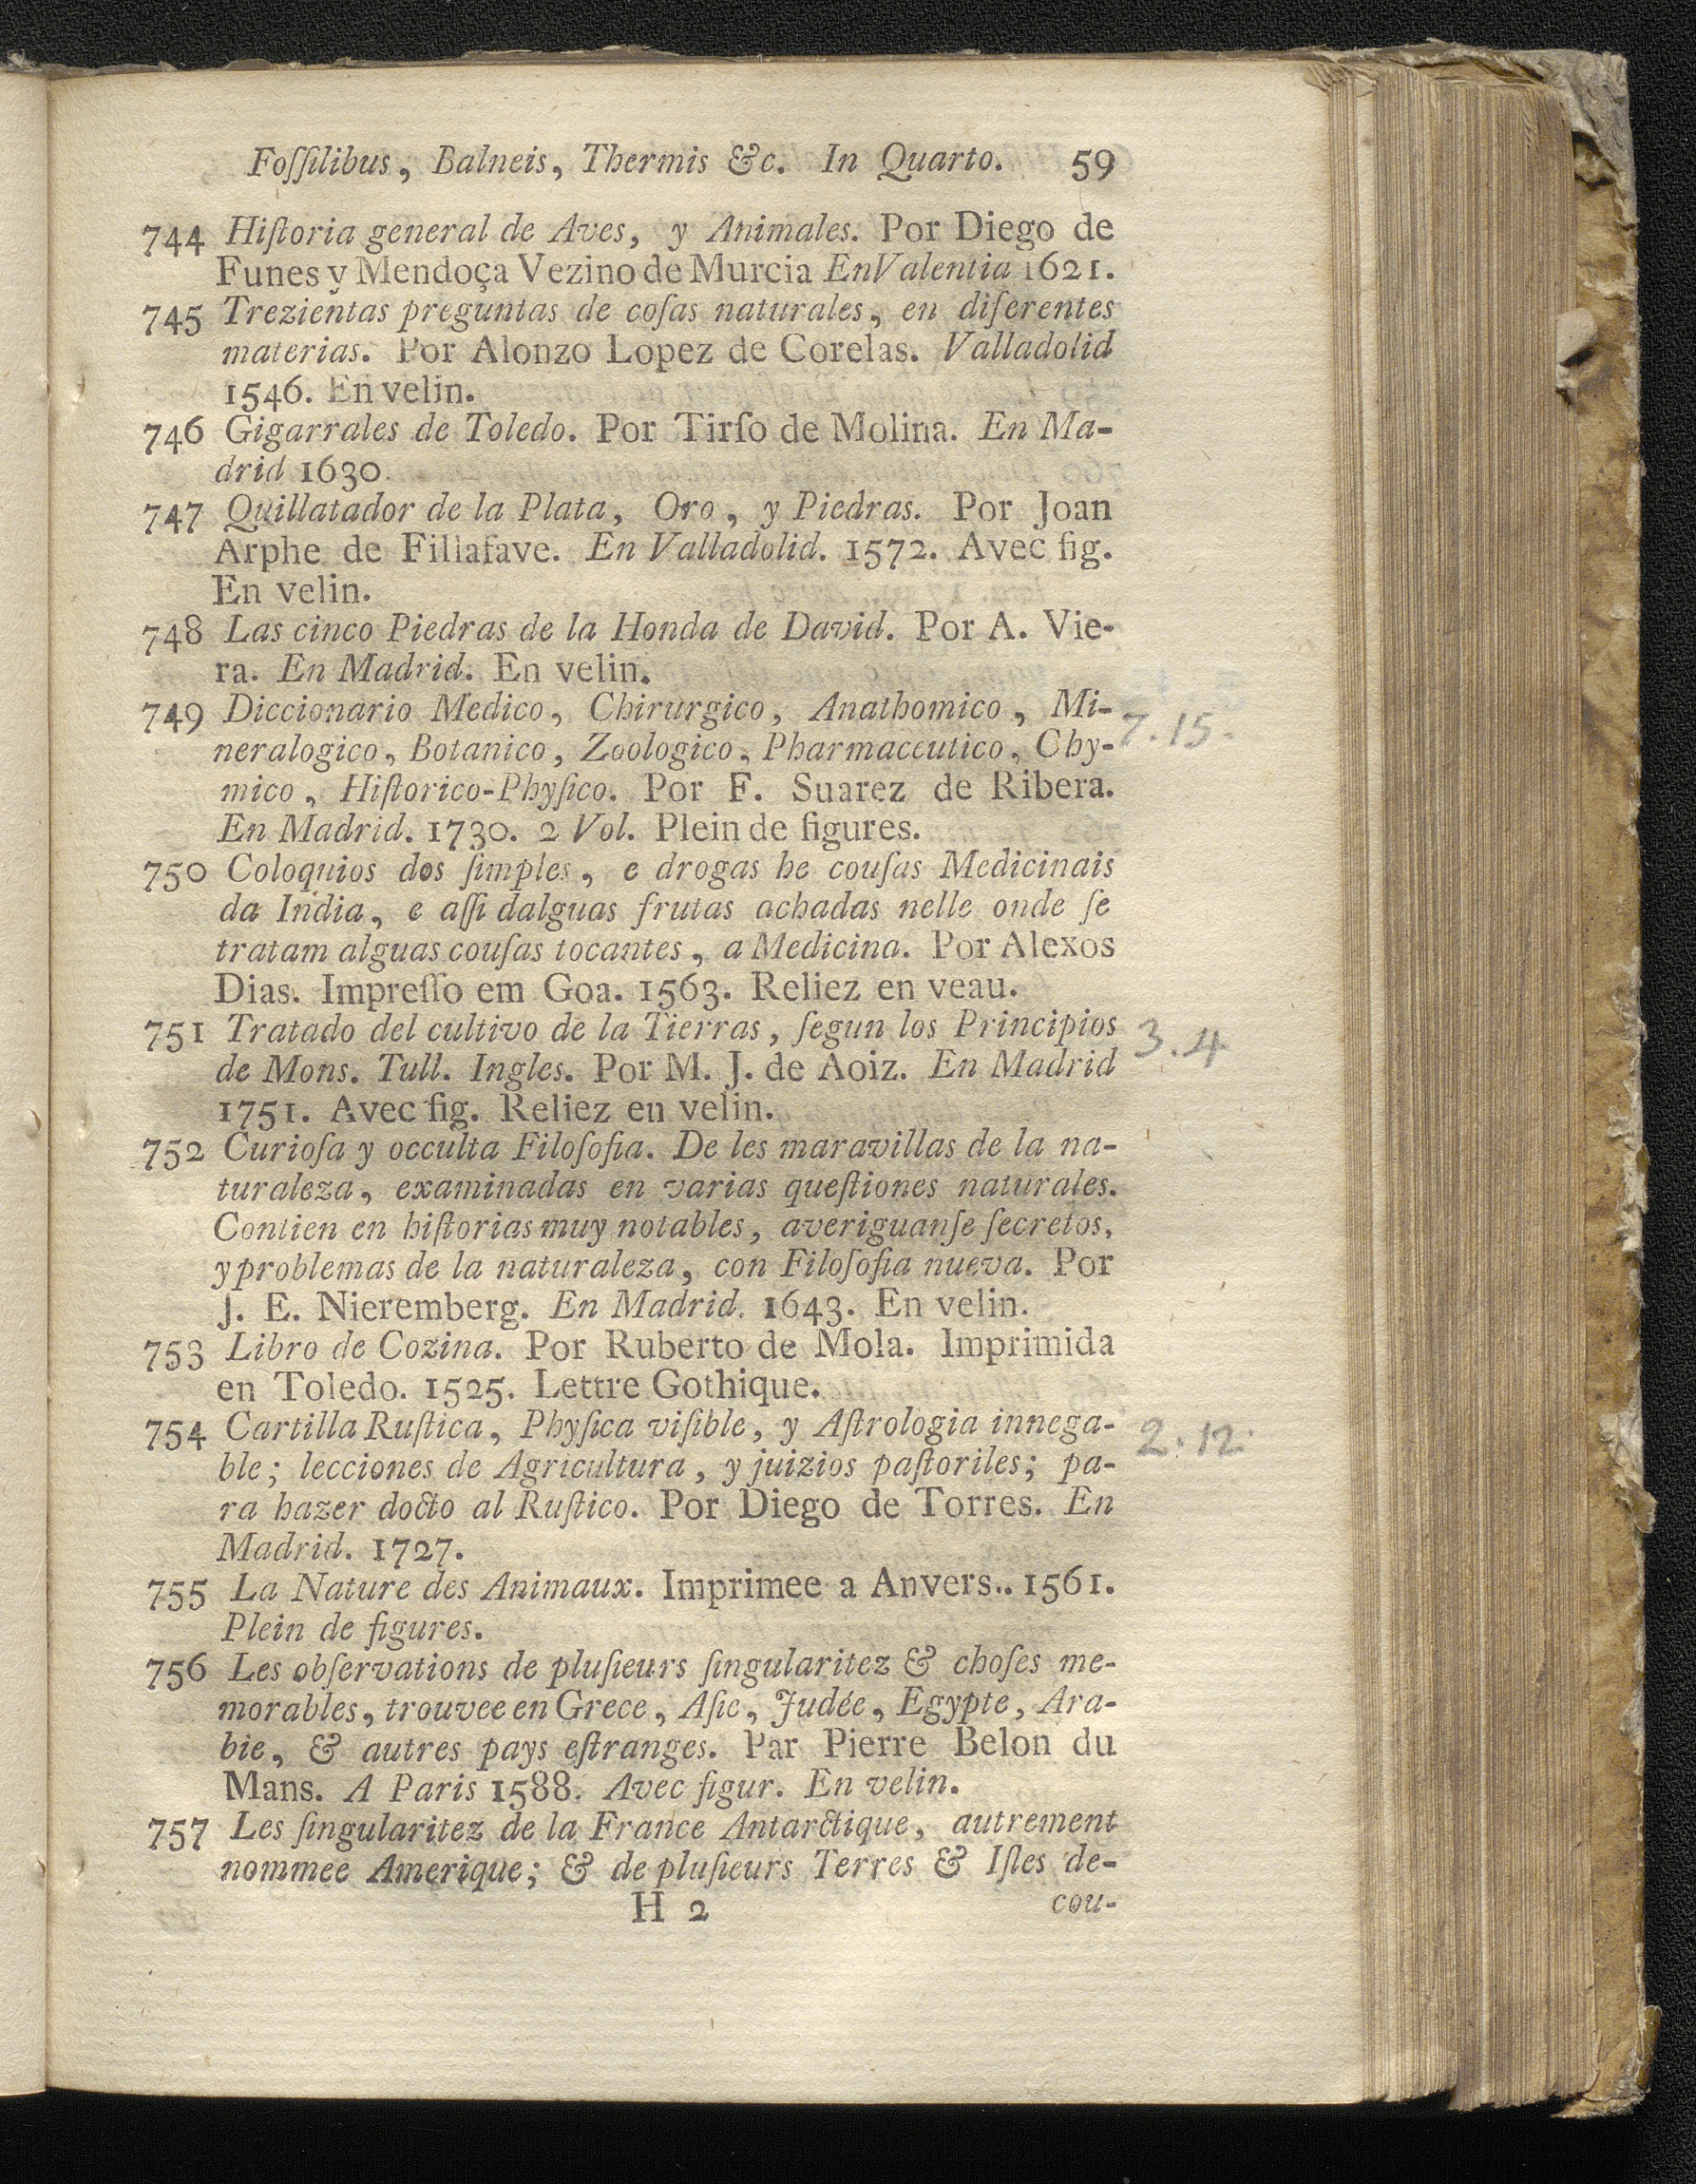 Foſſilibus, Balneis, Thermis &c. In Quarto. 59
744 Hiſtoria general de Aves, y Animales. Por Diego de
Funes y Mendoça Vezino de Murcia En Valentia 1621.
745 Trezientas preguntas de coſas naturales, en diferentes
materias. Por Alonzo Lopez de Corelas. Valladolid
1546. En velin.
746 Gigarrales de Toledo. Por Tirſo de Molina. En Ma-
drid 1630.
747 Quillatador de la Plata, Oro, y Piedras. Por Joan
Arphe de Fillafave. En Valladolid. 1572. Avec fig.
En velin.
748 Las cinco Piedras de la Honda de David. Por A. Vie-
ra. En Madrid. En velin.
749 Diccionario Medico, Chirurgico, Anathomico, Mi- 7.15.
neralogico, Botanico, Zoologico, Pharmaceutico, Chy-
mico, Hiſtorico-Phyſico. Por F. Suarez de Ribera.
En Madrid. 1730. 2 Vol. Plein de figures.
750 Coloquios dos ſimples, e drogas he couſas Medicinais
da India, e aſſi dalguas frutas achadas nelle onde ſe
tratam alguas couſas tocantes, a Medicina. Por Alexos
Dias. Impreſſo em Goa. 1563. Reliez en veau.
751 Tratado del cultivo de la Tierras, ſegun los Principios 3.4
de Mons. Tull. Ingles. Por M. J. de Aoiz. En Madrid
1751. Avec fig. Reliez en velin.
752 Curioſa y occulta Filoſofia. De les maravillas de la na-
turaleza, examinadas en varias queſtiones naturales.
Contien en hiſtorias muy notables, averiguanſe ſecretos,
y problemas de la naturaleza, con Filoſofia nueva. Por
J. E. Nieremberg. En Madrid. 1643. En velin.
753 Libro de Cozina. Por Ruberto de Mola. Imprimida
en Toledo. 1525. Lettre Gothique.
754 Cartilla Ruſtica, Phyſica viſible, y Aſtrologia innega- 2.12.
ble; lecciones de Agricultura, y juizios paſtoriles; pa-
ra hazer docto al Ruſtico. Por Diego de Torres. En
Madrid. 1727.
755 La Nature des Animaux. Imprimee a Anvers.. 1561.
Plein de figures.
756 Les obſervations de pluſieurs ſingularitez & choſes me-
morables, trouvee en Grece, Aſie, Judée, Egypte, Ara-
bie, & autres pays eſtranges. Par Pierre Belon du
Mans. A Paris 1588. Avec figur. En velin.
757 Les ſingularitez de la France Antarctique, autrement
nommee Amerique; & de pluſieurs Terres & Iſles de-
H 2 cou-